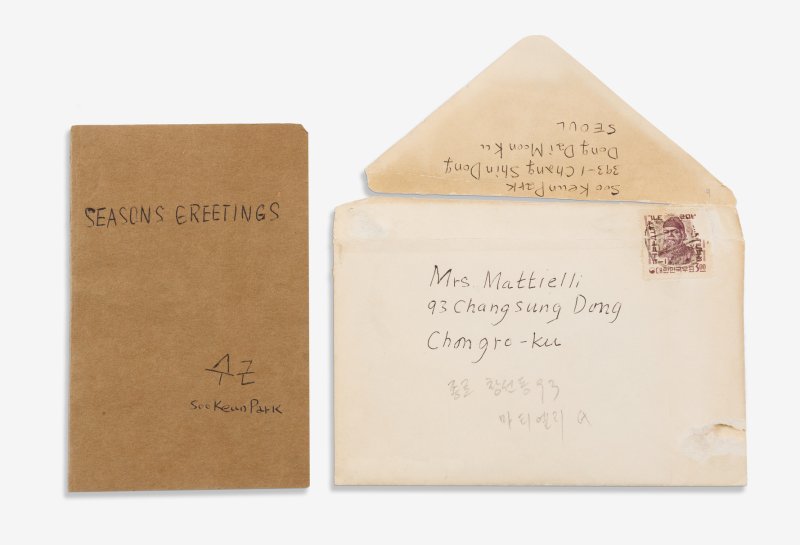 SEASONS GREETINGS
수근
SooKeunPark
SooKeunPark
393-1 Chang Shin Dong
Dong Dai Moon Ku
SEOUL
대한민국우표 3.00
Mrs. Mattielli
93 Changsung Dong
Chongro-ku
종로 창선동 93
마티엘리